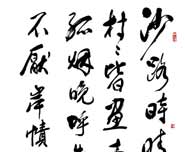 沙路時晴
村々皆畫
孤煙晚呼
不厭岸幘